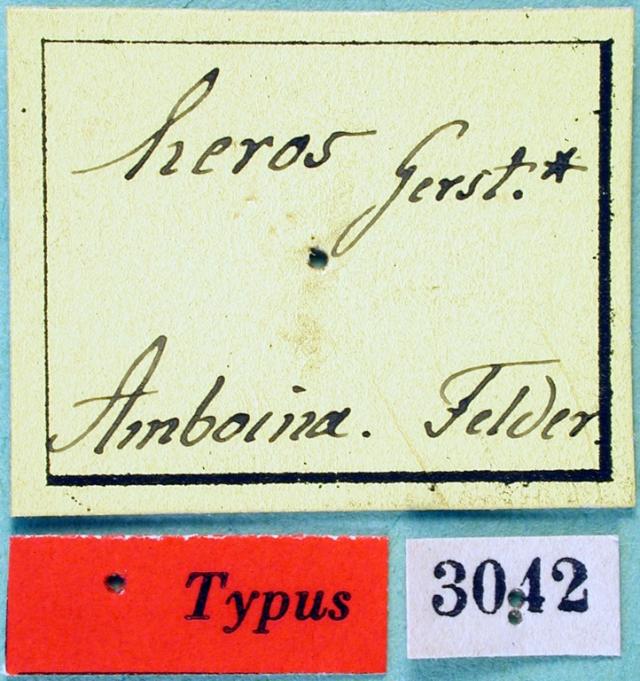 heros Gerst.*
Amboina. Felder
Typus
3042